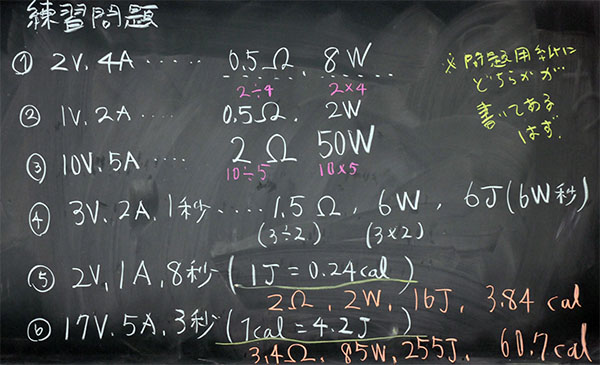 練習問題
① 2V. 4A ‥‥‥ 0.5Ω. 8W
2÷4 2×4
② 1V. 2A ‥‥‥ 0.5Ω. 2W
③ 10V. 5A ‥‥‥ 2Ω 50W
10÷5 10×5
④ 3V. 2A. 1秒 ‥‥‥ 1.5Ω, 6W, 6J(6W秒)
(3÷2) (3×2)
⑤ 2V, 1A, 8秒 (1J=0.24cal)
2Ω, 2W, 16J, 3.84 cal
⑥ 17V. 5A, 3秒 (1cal=4.2J)
3.4Ω, 85W, 255J, 60.7cal
※ 問題用紙に
どちらかが
書いてある
はず.